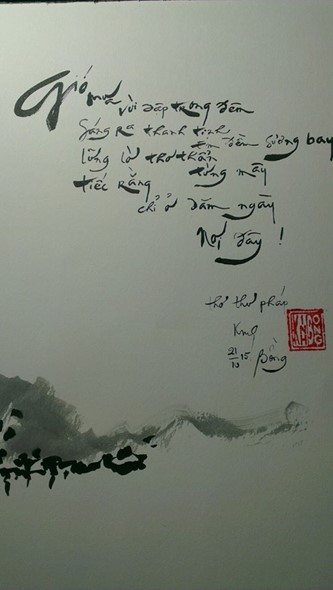 Gió mưa vùi dập trong đêm
Sáng ra thanh tịnh êm đềm sương bay
Lững lờ thơ thẩn từng mây
tiếc rằng chỉ ở dăm ngày
Nơi đây !
thơ thư pháp
21/10 15 Bồng